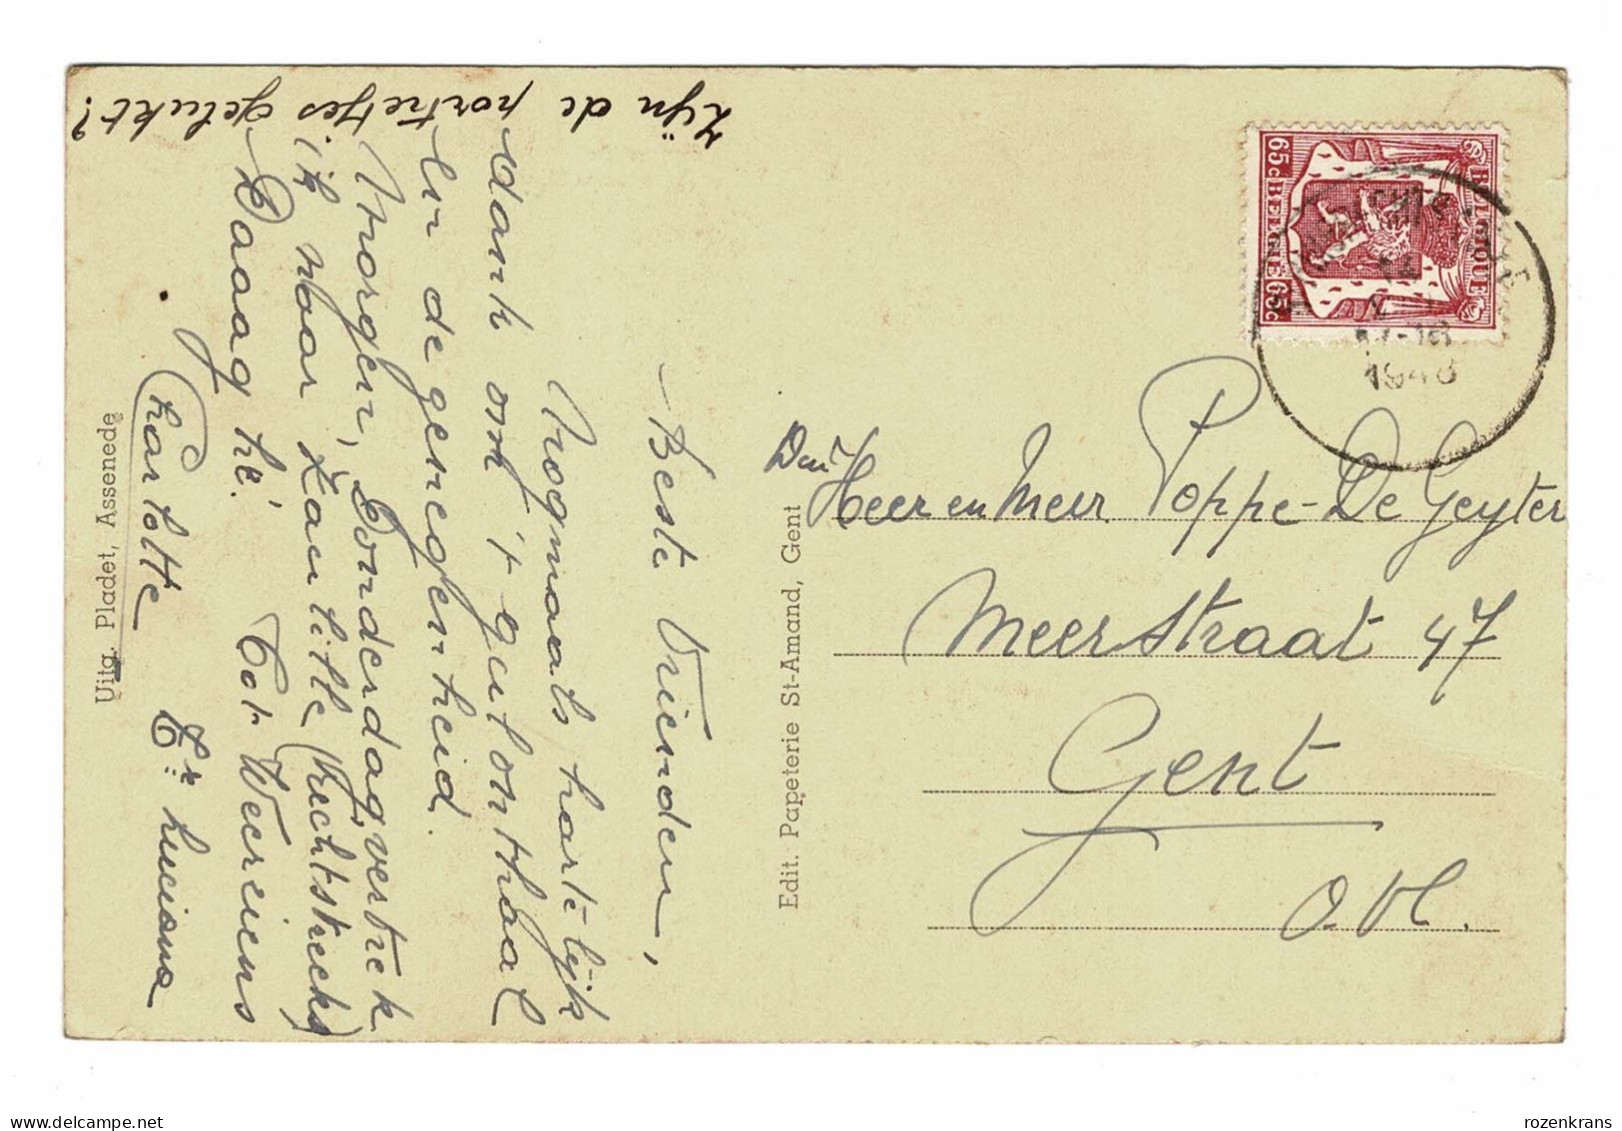 Beste Vrienden,
Nogmaals hartelijk
dank om 't gul onthaal
en de genegenheid.
Morgen, Donderdag, vertrek
ik naar Zan (rechtstreeks)
Daaag hé! Tot Weerziens
Charlotte
Er: Luciana
Zijn de portretjes gelukt?
Uitg. Pladet, Assenede
Edit. Papeterie St-Amand, Gent
65c BELGIE 65c
BELGIQUE
14
17-18
1948
Den Heer en Mevr. Poppe-De Geyter
Meerstraat 47
Gent
O. Vl.
delcampe.net
rozenkrans